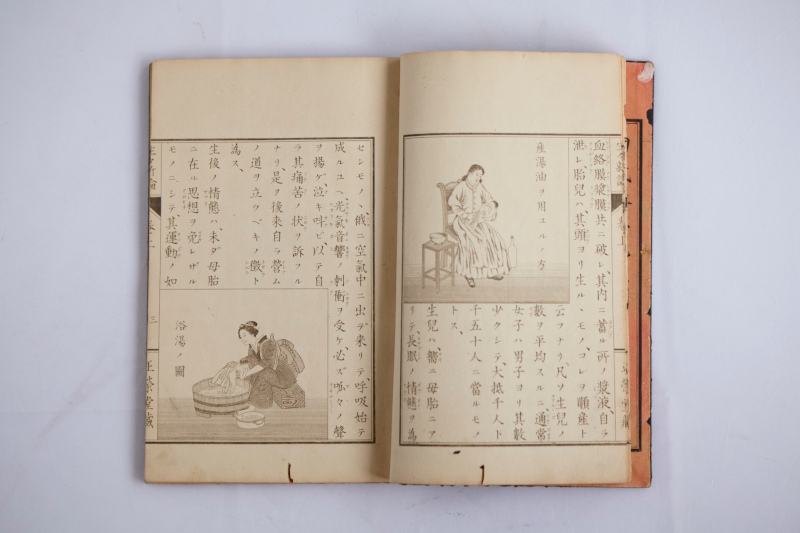 血絡膜漿膜共ニ破レ、其内ニ蓄ル所ノ漿液、自ラ
泄レ、胎兒ハ其頭ヨリ生ルヽモノ、コレヲ順産ト
産湯油ヲ用ユルノ方
云フナリ、凡ソ生兒ノ
數ヲ平均スルニ通常
女子ハ男子ヨリ其數
少クシテ、大抵千人ト
千五十人ニ當ルモノ
トス、
生兒ハ嚮ニ母胎ニア
リテ、長眠ノ情態ヲ為
セシモノヽ、俄ニ空氣中ニ出デ来リテ、呼吸始テ
成ルユヘ、光氣音響ノ刺衝ヲ受ケ、必ズ呱々ノ聲
ヲ揚ゲ、泣キ叫ビ、以テ自
ラ其痛苦ノ状ヲ訴フル
ナリ、是ヲ後来自ラ營ム
ノ道ヲ立ツベキノ徴ト
為ス、
生後ノ情態ハ、未ダ母胎
ニ在ル思想ヲ免レザル
モノニシテ、其運動ノ如
浴湯ノ圖
三